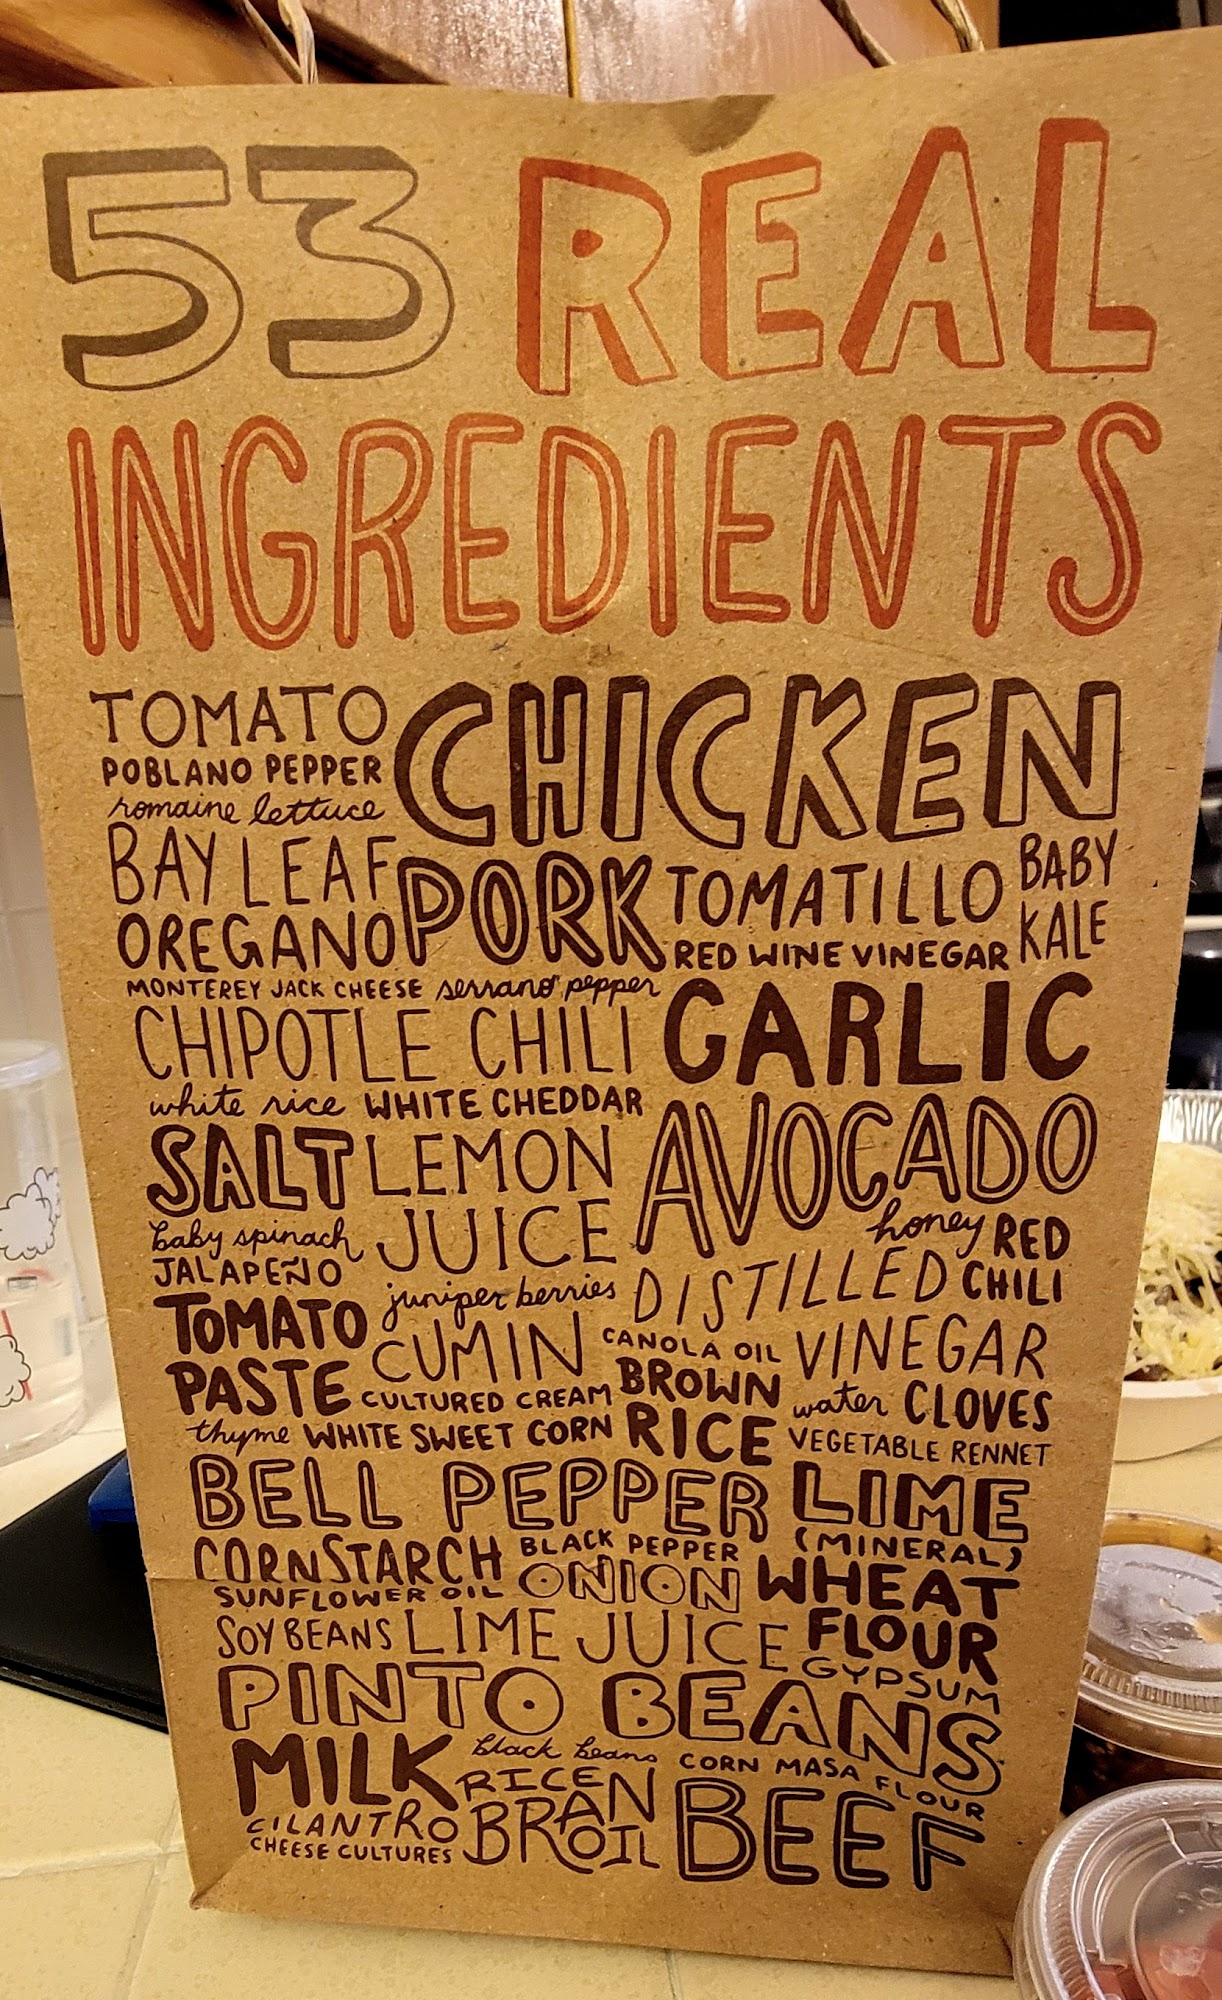 53 REAL
INGREDIENTS
TOMATO
POBLANO PEPPER
romaine lettuce
CHICKEN
BAY LEAF
OREGANO
PORK
TOMATILLO
RED WINE VINEGAR
BABY
KALE
MONTEREY JACK CHEESE serrano pepper
CHIPOTLE CHILI
GARLIC
white rice WHITE CHEDDAR
SALT
LEMON
JUICE
AVOCADO
baby spinach
JALAPEÑO
juniper berries
honey RED
CHILI
DISTILLED
VINEGAR
TOMATO
PASTE
CUMIN
CANOLA OIL
CULTURED CREAM
BROWN
RICE
water CLOVES
thyme WHITE SWEET CORN
VEGETABLE RENNET
BELL PEPPER
LIME
(MINERAL)
CORNSTARCH
BLACK PEPPER
SUNFLOWER OIL
ONION
WHEAT
FLOUR
SOYBEANS LIME JUICE
GYPSUM
PINTO BEANS
MILK
black beans
CORN MASA FLOUR
RICE
BRAN
OIL
CILANTRO
CHEESE CULTURES
BEEF